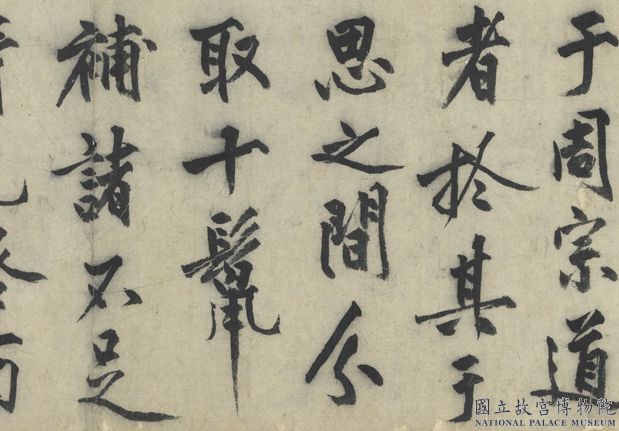 于周宗道
者於其于
思之間分
取十鬣
補諸不足
國立故宮博物院
NATIONAL PALACE MUSEUM